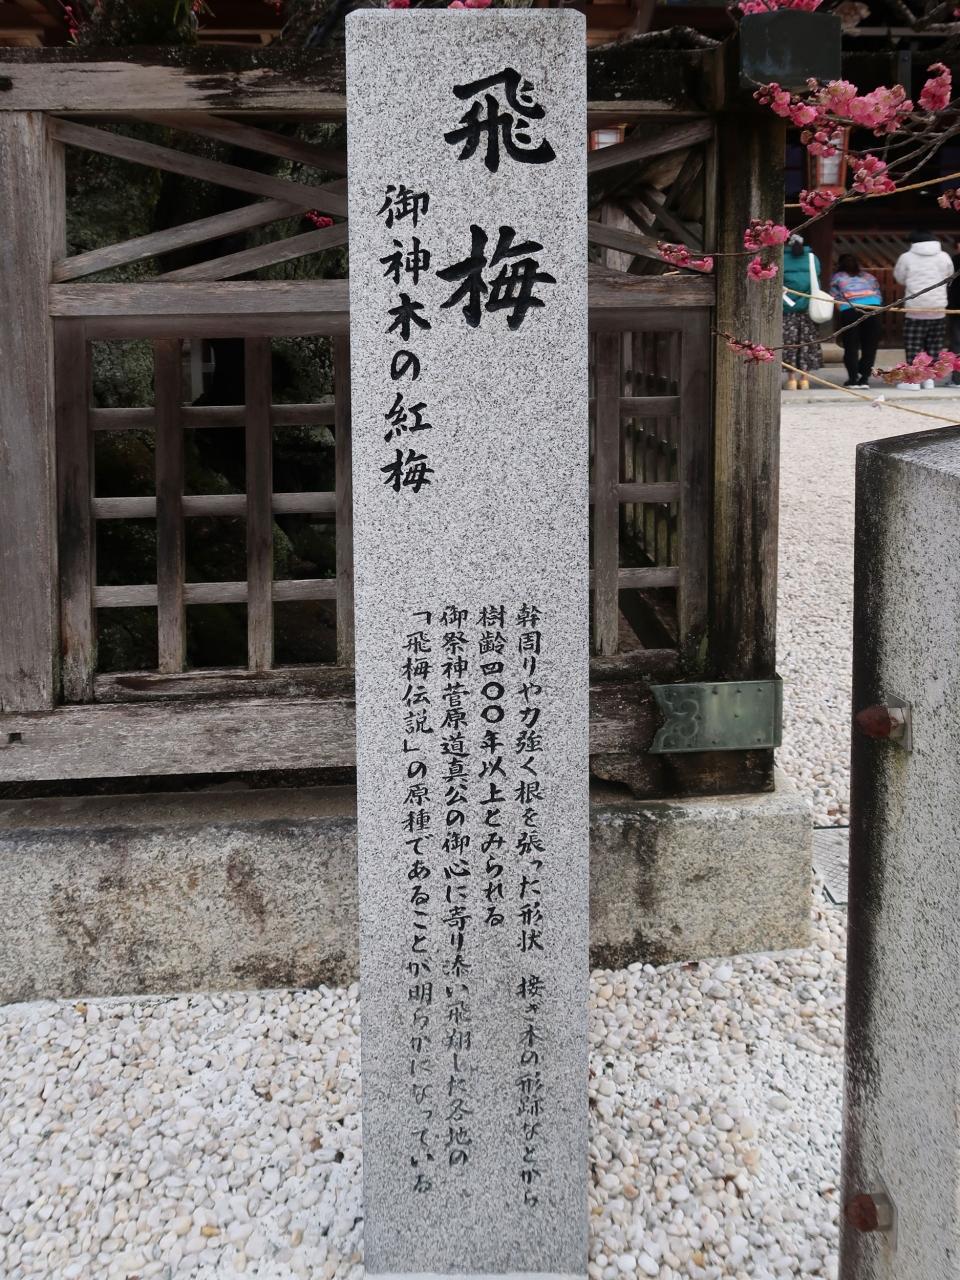 飛梅
御神木の紅梅
幹周りや力強く根を張った形状 接ぎ木の形跡などから
樹齢四〇〇年以上とみられる
御祭神菅原道真公の御心に寄り添い飛翔した各地の
「飛梅伝説」の原種であることが明らかになっている